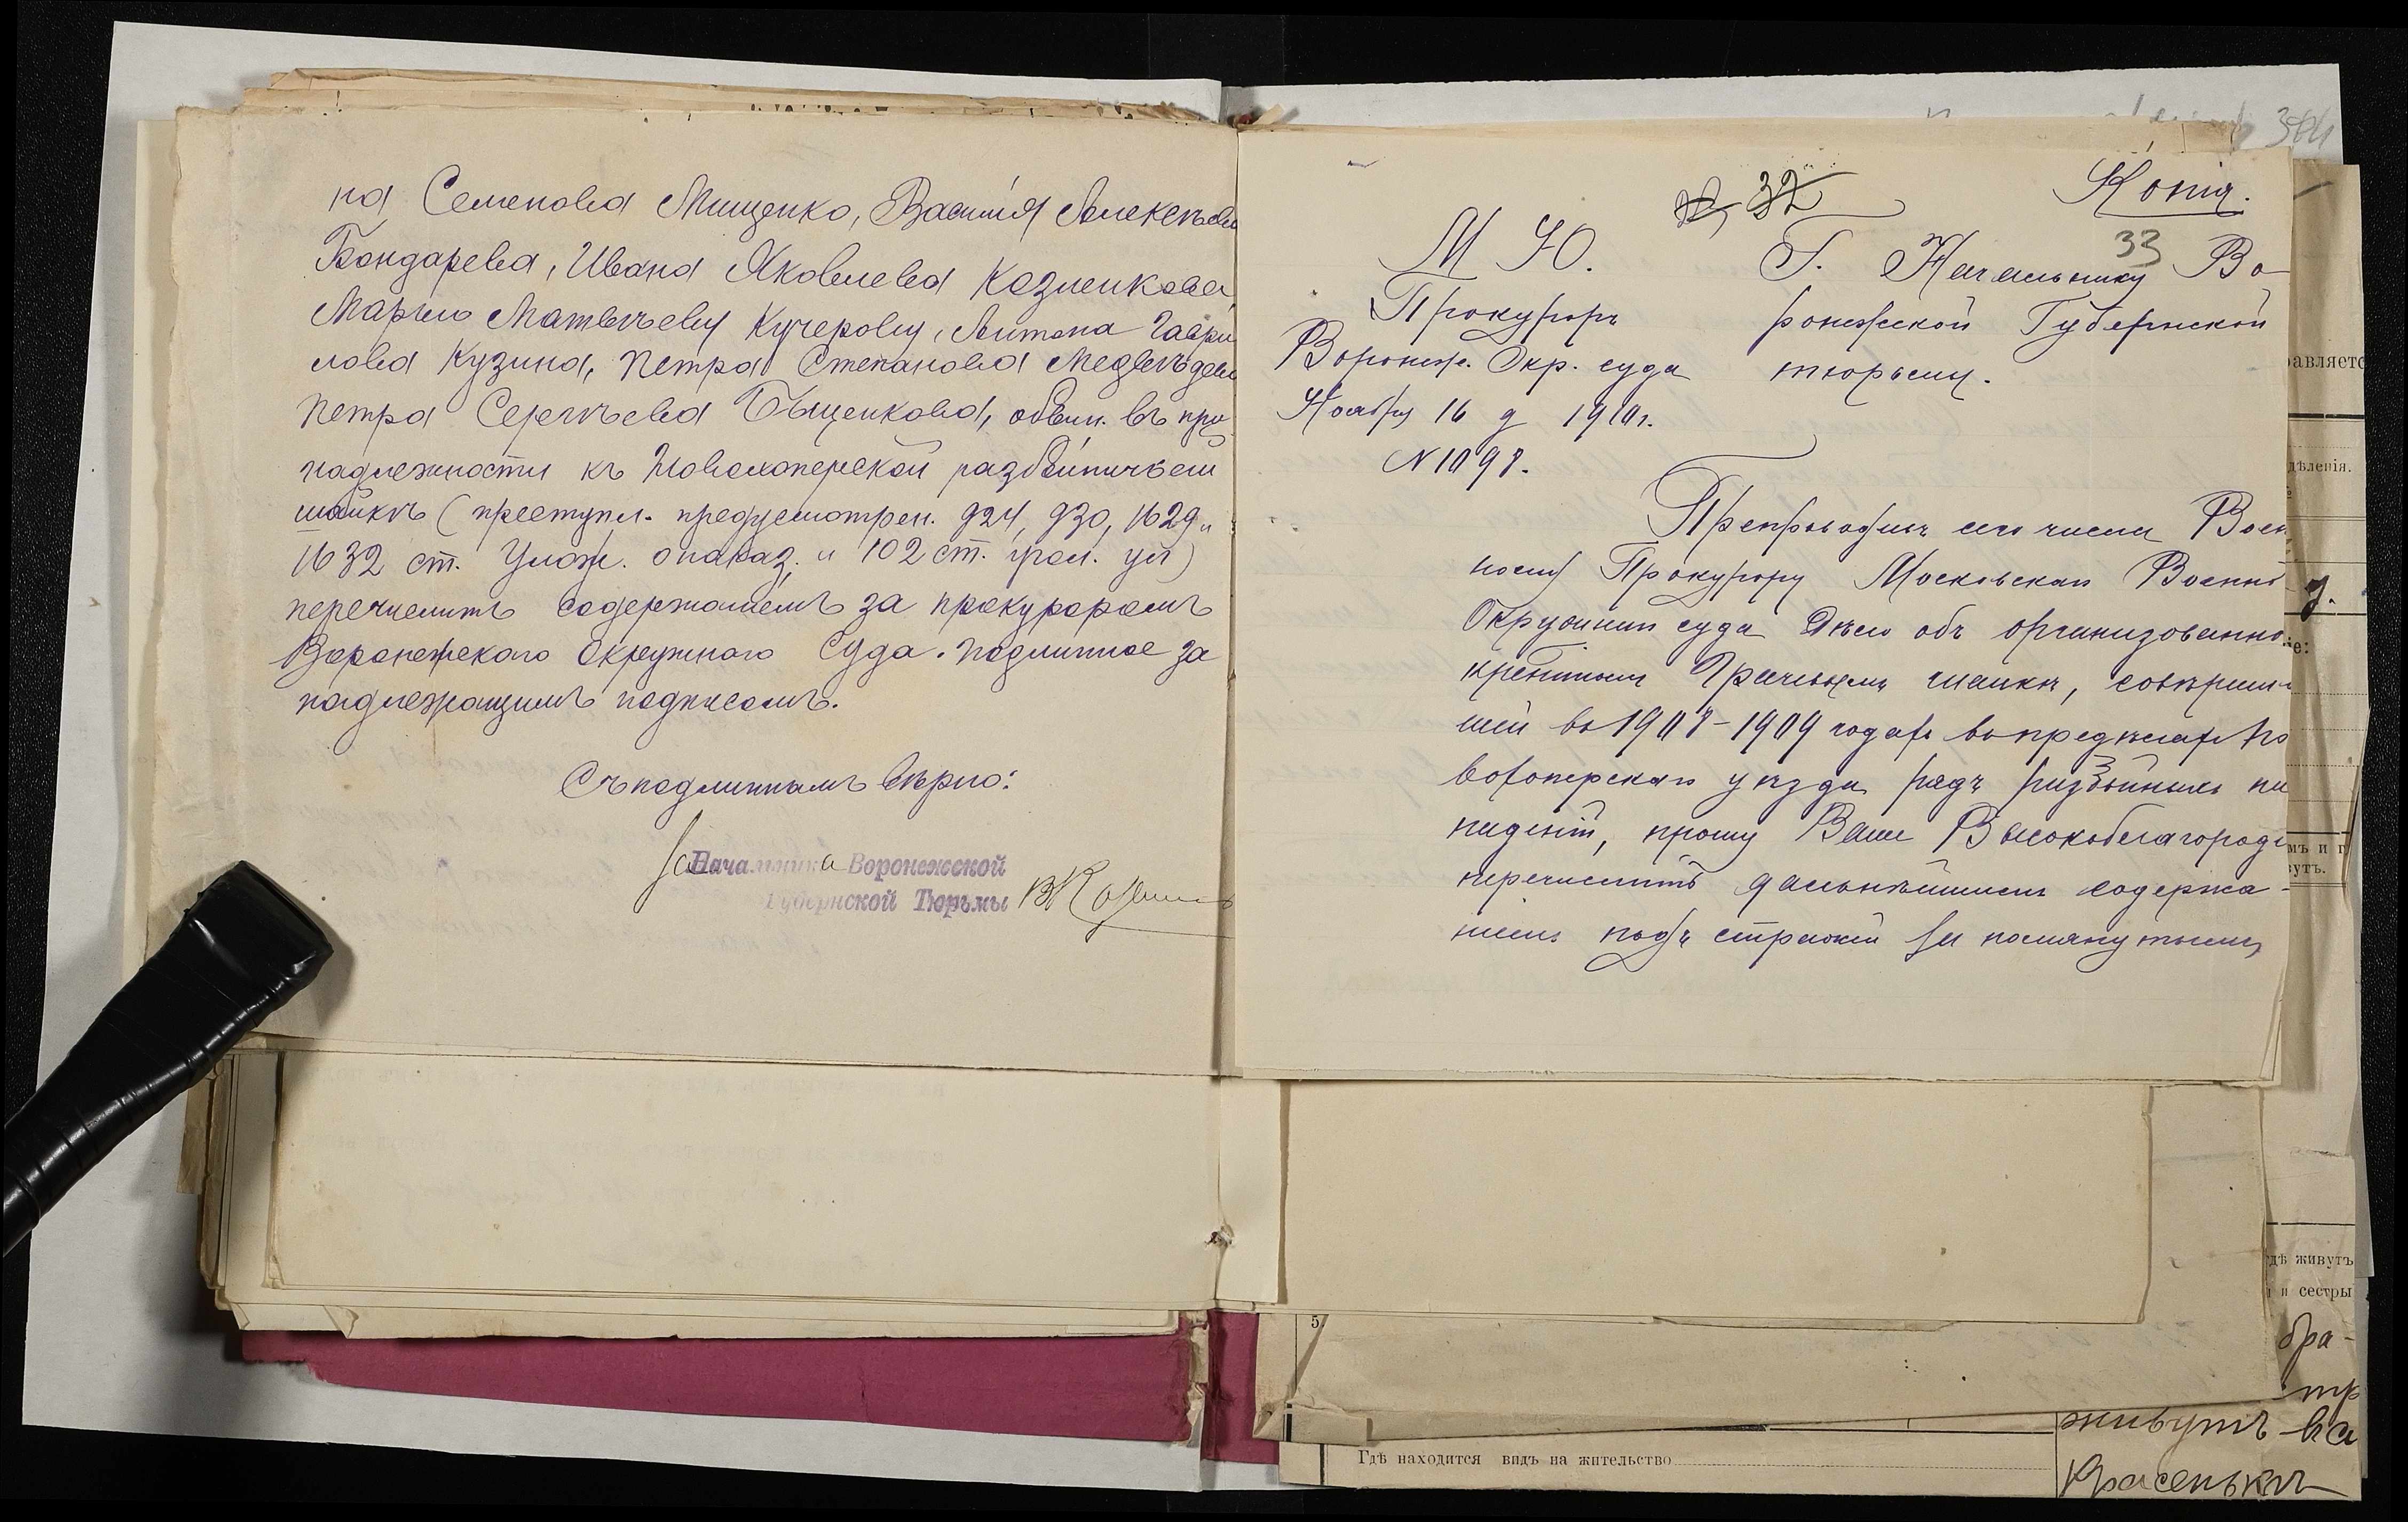 на Семенова Мищенко, Василія Алексѣева
Бондарева, Ивана Яковлева Козленкова,
Марью Матвѣеву Кучерову, Антона Гаври
лова Кузина, Петра Степанова Медвѣдева
Петра Сергѣева Быценкова, обвин. въ при
надлежности къ Новохоперской разбойничьей
шайкѣ (преступл. предусмотрен. 924, 930, 1629 и
1632 ст. Улож. о наказ. и 102 ст. угол. ул)
перечислить содержаніемъ за прокуроромъ
Воронежскаго Окружнаго Суда. Подлинное за
надлежащимъ подписомъ.
Съ подлиннымъ вѣрно:
За Начальника Воронежской
Губернской Тюрьмы
32
Копія.
33
М Ю.
Прокуроръ
Воронеж. Окр. суда
Ноября 16 д 1910 г.
N 1098.
Г. Начальнику Во-
ронежской Губернской
тюрьмы.
Препроводивъ сего числа Воен
ному Прокурору Московскаго Военно
Окружнаго суда дѣло объ организованной
крестьян. шайкѣ, совершив
шей въ 1908-1909 годахъ въ предѣлахъ Но
вохоперскаго уѣзда рядъ разбойныхъ на
паденій, прошу Ваше Высокоблагородіе
перечислить дальнѣйшимъ содержа-
ніемъ подъ стражей за помянутымъ
авляетс
дѣленія.
мъ и п
вутъ.
дѣ живутъ
и сестры
бра-
живутъ
5.
Гдѣ находится видъ на жительство